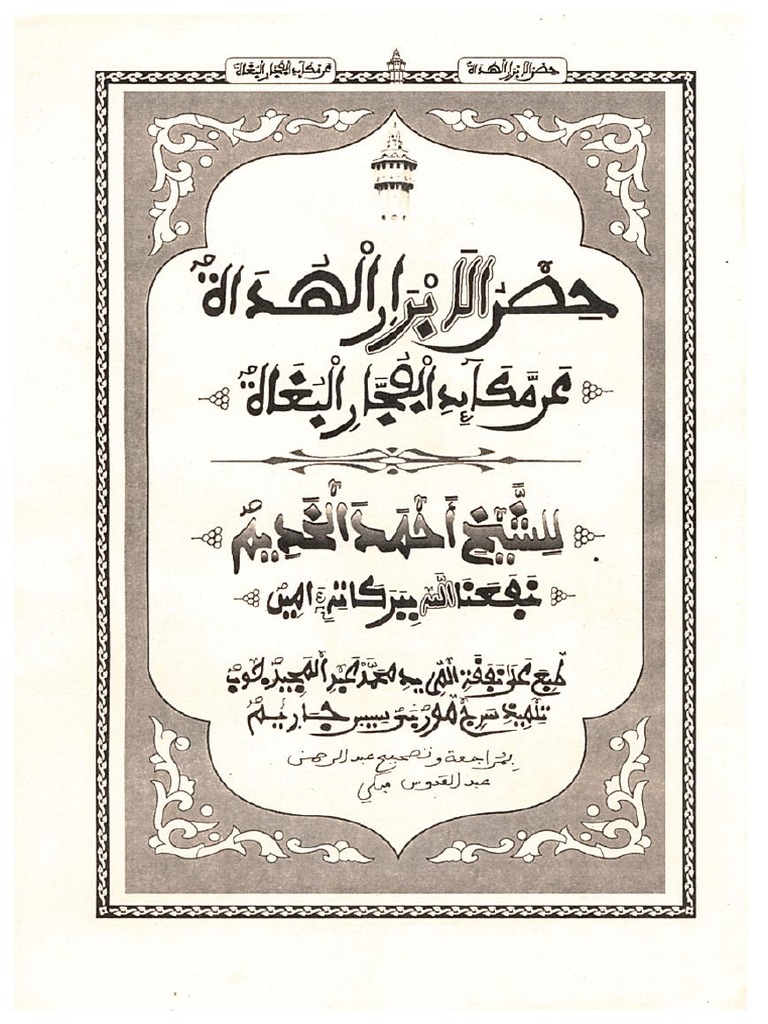 حِصْنُ الْأَبْرَارِ الْهُدَاةْ
عَنْ مَكَائِدِ الْفُجَّارِ الْبُغَاةْ
حِصْنُ الْأَبْرَارِ الْهُدَاةْ
عَنْ مَكَائِدِ الْفُجَّارِ الْبُغَاةْ
لِلشَّيْخِ أَحْمَدَ الْخَدِيمْ
نَفَعَنَا اللَّهُ بِبَرَكَاتِهِ آمِينْ
طبع على نفقة المريد محمد عبد المجيد جوب
تلميذ سرج مور
بمراجعة وتصحيح عبد الرحمن
عبد القدوس مبكي